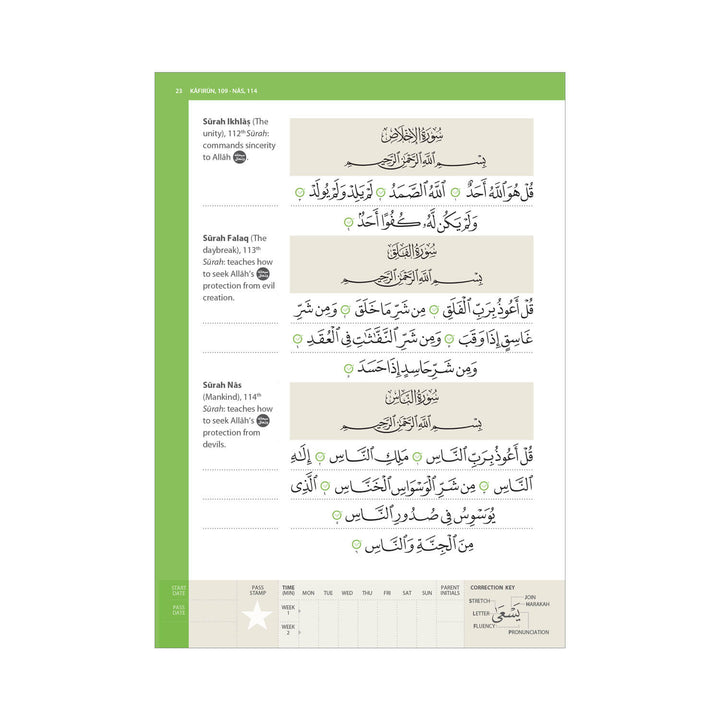 23 KĀFIRŪN, 109 - NĀS, 114
Sūrah Ikhlāṣ (The
unity), 112th Sūrah:
commands sincerity
to Allāh .
سُورَةُ الإِخْلَاصِ
بِسْمِ اللَّهِ الرَّحْمَٰنِ الرَّحِيمِ
قُلْ هُوَ ٱللَّهُ أَحَدٌ ۝ ٱللَّهُ ٱلصَّمَدُ ۝ لَمْ يَلِدْ وَلَمْ يُولَدْ ۝
وَلَمْ يَكُن لَّهُۥ كُفُوًا أَحَدٌۢ ۝
Sūrah Falaq (The
daybreak), 113th
Sūrah: teaches how
to seek Allāh's
protection from evil
creation.
سُورَةُ الفَلَقِ
بِسْمِ اللَّهِ الرَّحْمَٰنِ الرَّحِيمِ
قُلْ أَعُوذُ بِرَبِّ ٱلْفَلَقِ ۝ مِن شَرِّ مَا خَلَقَ ۝ وَمِن شَرِّ
غَاسِقٍ إِذَا وَقَبَ ۝ وَمِن شَرِّ ٱلنَّفَّٰثَٰتِ فِى ٱلْعُقَدِ ۝
وَمِن شَرِّ حَاسِدٍ إِذَا حَسَدَ ۝
Sūrah Nās
(Mankind), 114th
Sūrah: teaches how
to seek Allāh's
protection from
devils.
سُورَةُ النَّاسِ
بِسْمِ اللَّهِ الرَّحْمَٰنِ الرَّحِيمِ
قُلْ أَعُوذُ بِرَبِّ ٱلنَّاسِ ۝ مَلِكِ ٱلنَّاسِ ۝ إِلَٰهِ
ٱلنَّاسِ ۝ مِن شَرِّ ٱلْوَسْوَاسِ ٱلْخَنَّاسِ ۝ ٱلَّذِى
يُوَسْوِسُ فِى صُدُورِ ٱلنَّاسِ ۝
مِنَ ٱلْجِنَّةِ وَٱلنَّاسِ ۝
START DATE
PASS DATE
PASS STAMP
TIME (MIN) MON TUE WED THU FRI SAT SUN PARENT INITIALS
WEEK 1
WEEK 2
CORRECTION KEY
STRETCH
JOIN
HARAKAH
LETTER
يَسْعَىٰ
FLUENCY
PRONUNCIATION